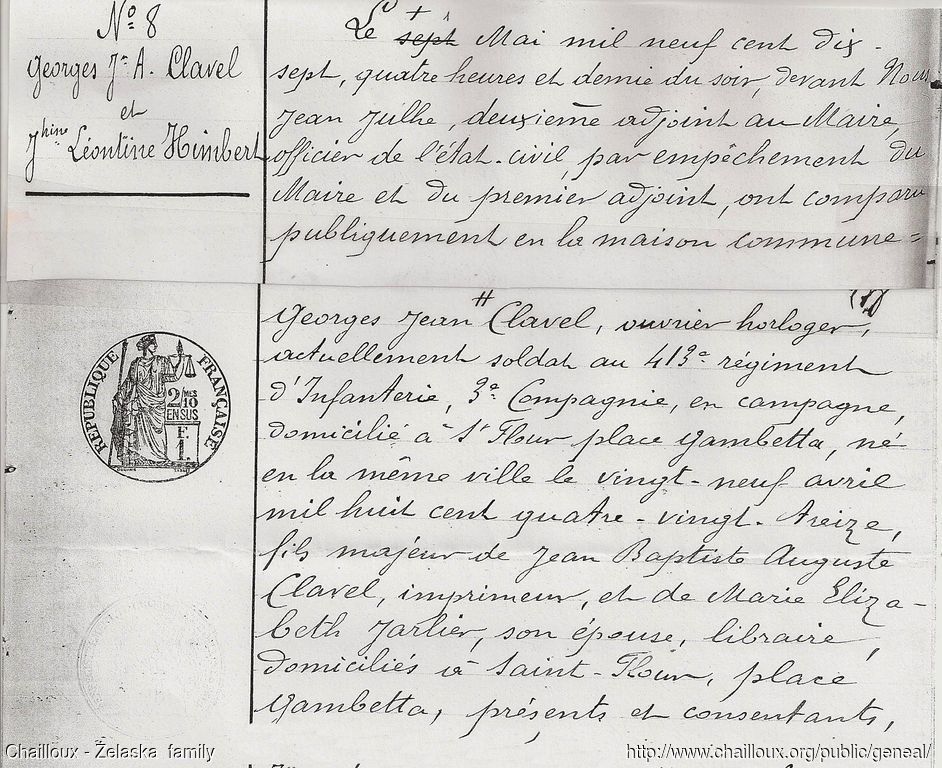 Nº 8
Georges Jn A. Clavel
et
Jhine Léontine Himbert
Le + sept Mai mil neuf cent dix-
sept, quatre heures et demie du soir, devant Nous
Jean Julhe, deuxième adjoint au Maire,
officier de l'état-civil, par empêchement du
Maire et du premier adjoint, ont comparu
publiquement en la maison commune =
Georges Jean # Clavel, ouvrier horloger,
actuellement soldat au 413e régiment
d'Infanterie, 3e Compagnie, en campagne,
domicilié à St Flour place Gambetta, né
en la même ville le vingt-neuf avril
mil huit cent quatre-vingt-treize,
fils majeur de Jean Baptiste Auguste
Clavel, imprimeur, et de Marie Eliza-
beth Jarlier, son épouse, libraire,
domiciliés à Saint-Flour, place
Gambetta, présents et consentants,
RÉPUBLIQUE FRANÇAISE
2/10 MES
EN SUS
F.
1.
Chailloux - Żelaska family
http://www.chailloux.org/public/geneal/